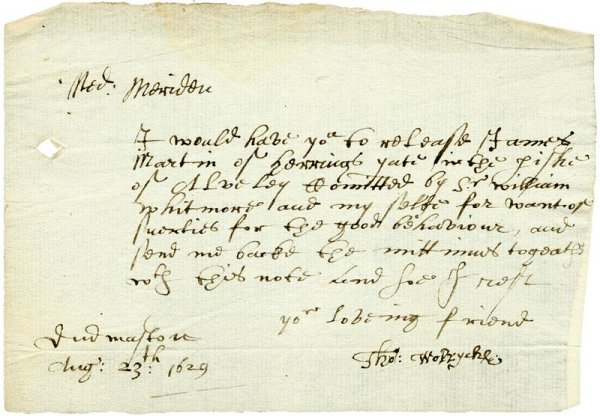 Ned: Meriden
I would have yor to release James
Martin of Herrings yate in the pishe
of Alveley Comitted by Sr william
Whitmore and my selfe for want of
suerties for the good behaviour, and
send me backe the mittimus togeath
wth this note And soe I rest
yor loveing friend
Tho: Wolryche
Dudmaston
Aug: 23th: 1629